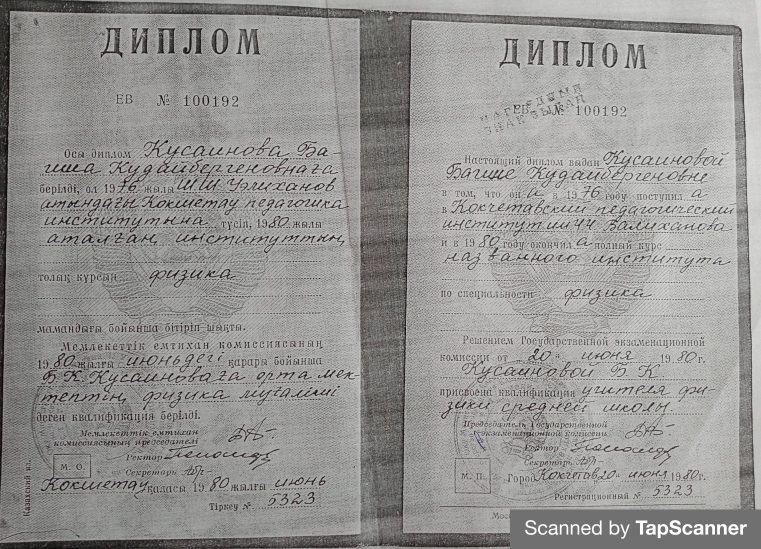 ДИПЛОМ
ЕВ № 100192
Осы диплом Кусаинова Ба-
гиша Кудайбергеновнаға
берілді, ол 1976 жылы Ш.Ш. Уәлиханов
атындағы Көкшетау педагогика
институтына түсіп, 1980 жылы
аталған институттың
толық курсын физика
мамандығы бойынша бітіріп шықты.
Мемлекеттік емтихан комиссиясының
1980 жылғы июньдегі қарары бойынша
Б.К. Кусаиноваға орта мек-
тептің физика мұғалімі
деген квалификация берілді.
Мемлекеттік емтихан
комиссиясының председателі
Ректор
Секретарь
М. О.
Көкшетау қаласы 1980 жылғы июнь
Тіркеу № 5323
Казахский яз.
ДИПЛОМ
НАГРУДНЫЙ
ЗНАК ВЫДАН
ЕВ № 100192
Настоящий диплом выдан Кусаиновой
Багише Кудайбергеновне
в том, что она в 1976 году поступила
в Кокчетавский педагогический
институт им Ч.Ч. Валиханова
и в 1980 году окончила полный курс
названного института
по специальности физика
Решением Государственной экзаменационной
комиссии от 20 июня 1980 г.
Кусаиновой Б. К.
присвоена квалификация учителя фи-
зики средней школы.
Председатель Государственной
экзаменационной комиссии
Ректор
Секретарь
М. П.
Город Кокчетав 20 июня 1980 г.
Регистрационный № 5323
Scanned by TapScanner